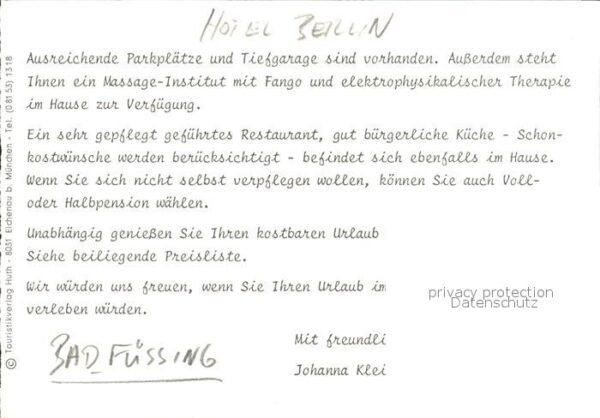 HOTEL BERLIN
Ausreichende Parkplätze und Tiefgarage sind vorhanden. Außerdem steht
Ihnen ein Massage-Institut mit Fango und elektrophysikalischer Therapie
im Hause zur Verfügung.
Ein sehr gepflegt geführtes Restaurant, gut bürgerliche Küche - Schon-
kostwünsche werden berücksichtigt - befindet sich ebenfalls im Hause.
Wenn Sie sich nicht selbst verpflegen wollen, können Sie auch Voll-
oder Halbpension wählen.
Unabhängig genießen Sie Ihren kostbaren Urlaub
Siehe beiliegende Preisliste.
Wir würden uns freuen, wenn Sie Ihren Urlaub im
verleben würden.
privacy protection
Datenschutz
Mit freundli
Johanna Klei
BAD FÜSSING
© Touristikverlag Huth - 8031 Eichenau b. München - Tel. (0 81 53) 13 18